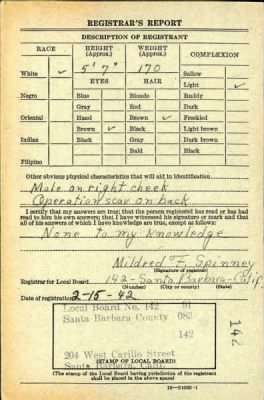 REGISTRAR'S REPORT
DESCRIPTION OF REGISTRANT
RACE HEIGHT (Approx.) WEIGHT (Approx.) COMPLEXION
5' 7" 170
White ✓ EYES HAIR Sallow
Light ✓
Negro Blue Blonde Ruddy
Gray Red Dark
Oriental Hazel Brown ✓ Freckled
Brown ✓ Black Light brown
Indian Black Gray Dark brown
Bald Black
Filipino
Other obvious physical characteristics that will aid in identification
Mole on right cheek
Operation scar on back
I certify that my answers are true; that the person registered has read or has had
read to him his own answers; that I have witnessed his signature or mark and that
all of his answers of which I have knowledge are true, except as follows:
None to my knowledge
Mildred F. Spinney
(Signature of registrar)
Registrar for Local Board 142 - Santa Barbara - Calif.
(Number) (City or county) (State)
Date of registration 2-15-42
Local Board No. 142 91
Santa Barbara County 083
142
204 West Carillo Street
Santa Barbara, Calif.
(STAMP OF LOCAL BOARD)
(The stamp of the Local Board having jurisdiction of the registrant
shall be placed in the above space)
142